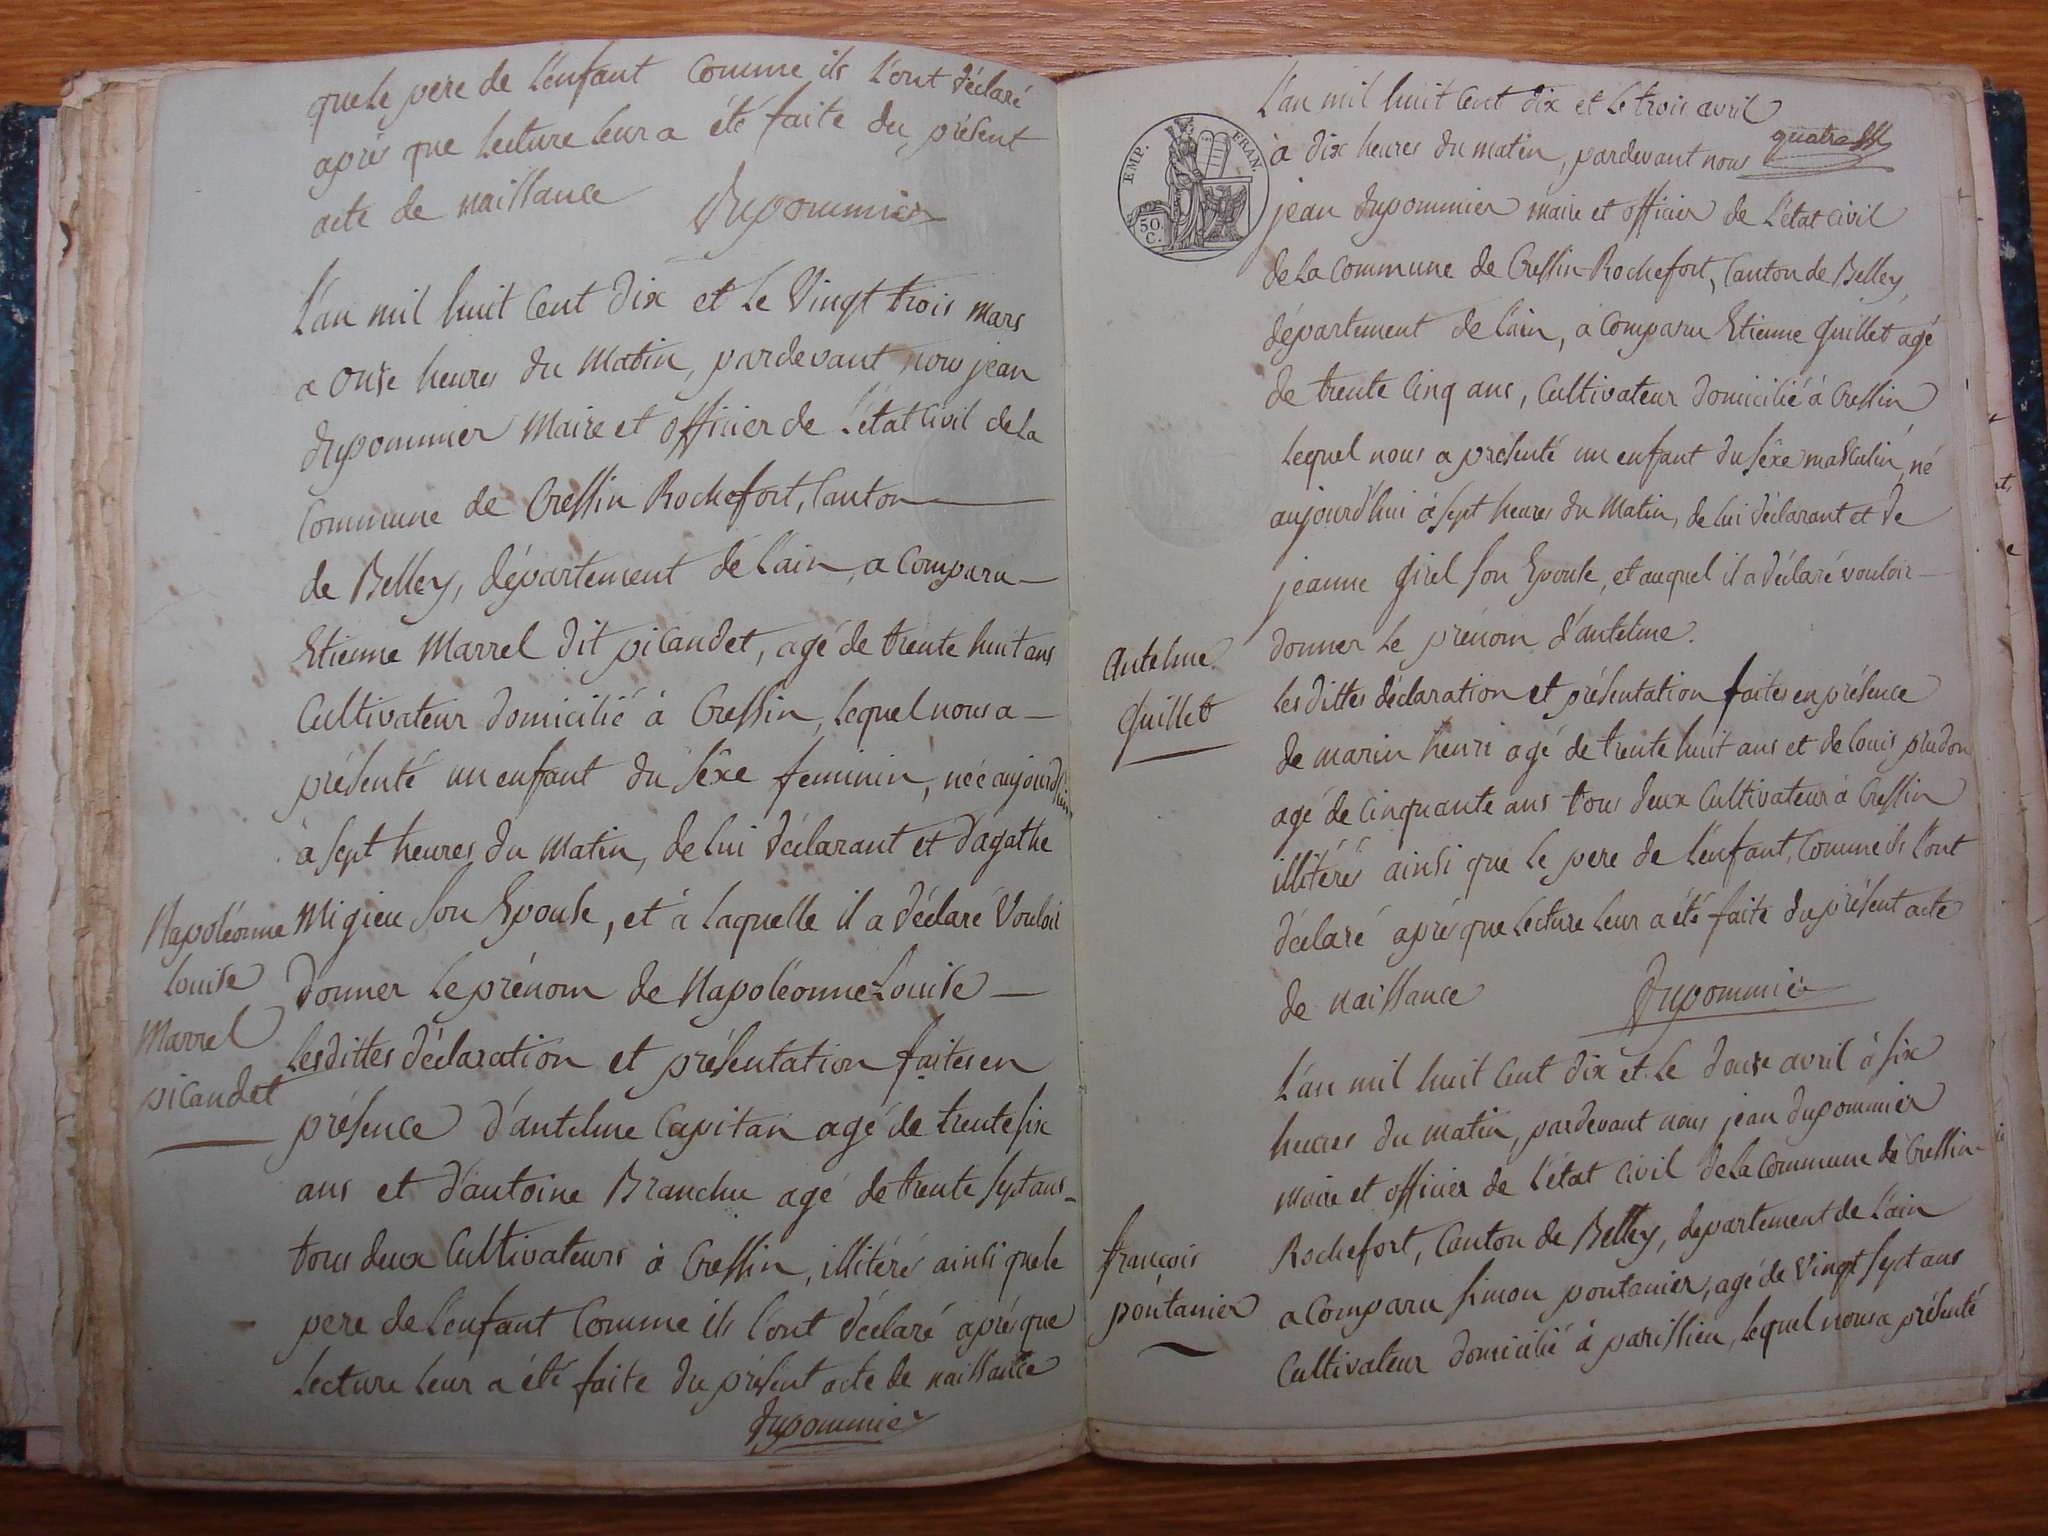 que le pere de l'enfant Comme ils l'ont déclaré
après que lecture leur a été faite du présent
acte de naissance Dupommier
L'an mil huit Cent dix et le Vingt trois mars
a onse heures du matin, pardevant nous jean
dupommier Maire et officier de l'état Civil de la
Commune de Cressin Rochefort, Canton
de Belley, département de l'ain, a Comparu
Etienne Marrel dit picandet, agé de trente huit ans
Cultivateur domicilié à Cressin, lequel nous a
présenté un enfant du sêxe feminin, née aujourd'hui
à sept heures du matin, de lui déclarant et d'agathe
Migieu son Epouse, et à laquelle il a déclaré Vouloir
donner le prénom de Napoléonne Louise
Napoléonne
Louise
Marrel
picandet
lesdittes déclaration et présentation faites en
présence d'antelme Capitan agé de trente six
ans et d'antoine Branche agé de trente sept ans
tous deux Cultivateurs à Cressin, illitérés ainsi que le
pere de l'enfant Comme ils l'ont déclaré après que
lecture leur a été faite du présent acte de naissance
Dupommier
EMP. FRAN.
50.
C.
quatre
L'an mil huit Cent dix et le trois avril
à dix heures du matin, pardevant nous
jean dupommier maire et officier de l'état Civil
de la Commune de Cressin-Rochefort, Canton de Belley,
département de l'ain, a Comparu Etienne Guillet agé
de trente Cinq ans, Cultivateur domicilié à Cressin
lequel nous a présenté un enfant du sêxe masculin, né
aujourd'hui à sept heures du Matin, de lui déclarant et de
jeanne Girel son Epouse, et auquel il a déclaré vouloir
donner le prénom d'antelme.
Antelme
Guillet
lesdittes déclaration et présentation faites en présence
de marin henri agé de trente huit ans et de louis prudon
agé de cinquante ans tous deux Cultivateur à Cressin
illitérés ainsi que le pere de l'enfant, Comme ils l'ont
déclaré après que lecture leur a été faite du présent acte
de naissance Dupommier
L'an mil huit Cent dix et le douse avril à six
heures du matin, pardevant nous jean dupommier
Maire et officier de l'état Civil de la Commune de Cressin-
Rochefort, Canton de Belley, département de l'ain
a Comparu simon pontanier, agé de Vingt sept ans
Cultivateur domicilié à parissieu, lequel nous a présenté
françois
pontanier